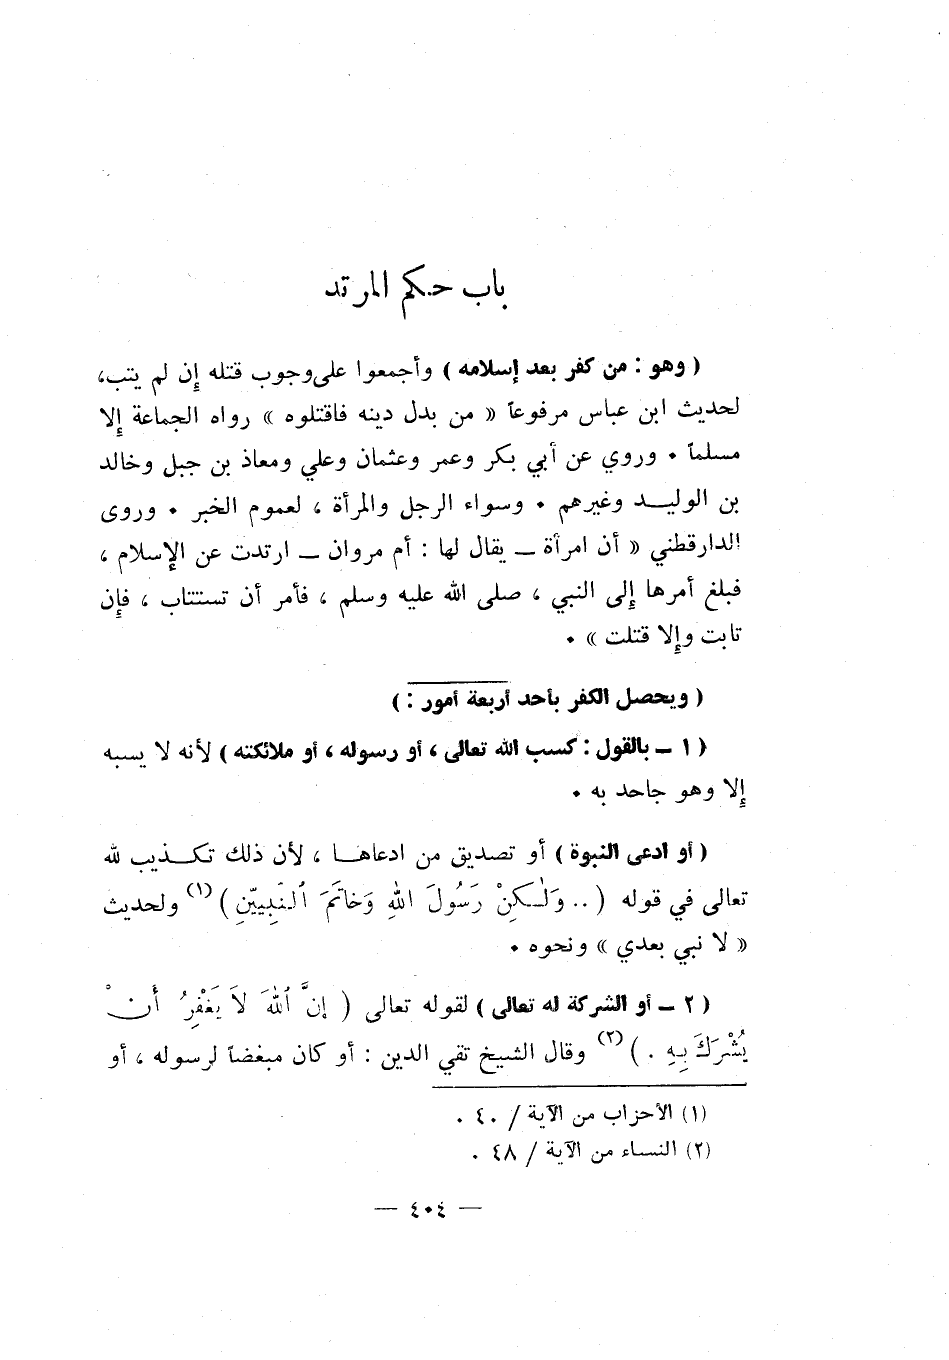 باب حكم المرتد
( وهو : من كفر بعد إسلامه ) وأجمعوا على وجوب قتله إن لم يتب ،
لحديث ابن عباس مرفوعاً « من بدل دينه فاقتلوه » رواه الجماعة إلا
مسلماً . وروي عن أبي بكر وعمر وعثمان وعلي ومعاذ بن جبل وخالد
بن الوليد وغيرهم . وسواء الرجل والمرأة ، لعموم الخبر . وروى
الدارقطني « أن امرأة – يقال لها : أم مروان – ارتدت عن الإسلام ،
فبلغ أمرها إلى النبي ، صلى الله عليه وسلم ، فأمر أن تستتاب ، فإن
تابت وإلا قتلت » .
( ويحصل الكفر بأحد أربعة أمور : )
( ١ – بالقول : كسب الله تعالى ، أو رسوله ، أو ملائكته ) لأنه لا يسبه
إلا وهو جاحد به .
( أو ادعى النبوة ) أو تصديق من ادعاها ، لأن ذلك تكذيب لله
تعالى في قوله ( .. وَلٰكِنْ رَسُولَ اللهِ وَخَاتَمَ ٱلنَّبِيِّينَ ) (١) ولحديث
« لا نبي بعدي » ونحوه .
( ٢ – أو الشركة له تعالى ) لقوله تعالى ( إِنَّ ٱللهَ لاَ يَغْفِرُ أَنْ
يُشْرَكَ بِهِ . ) (٢) وقال الشيخ تقي الدين : أو كان مبغضاً لرسوله ، أو
(١) الأحزاب من الآية / ٤٠ .
(٢) النساء من الآية / ٤٨ .
— ٤٠٤ —